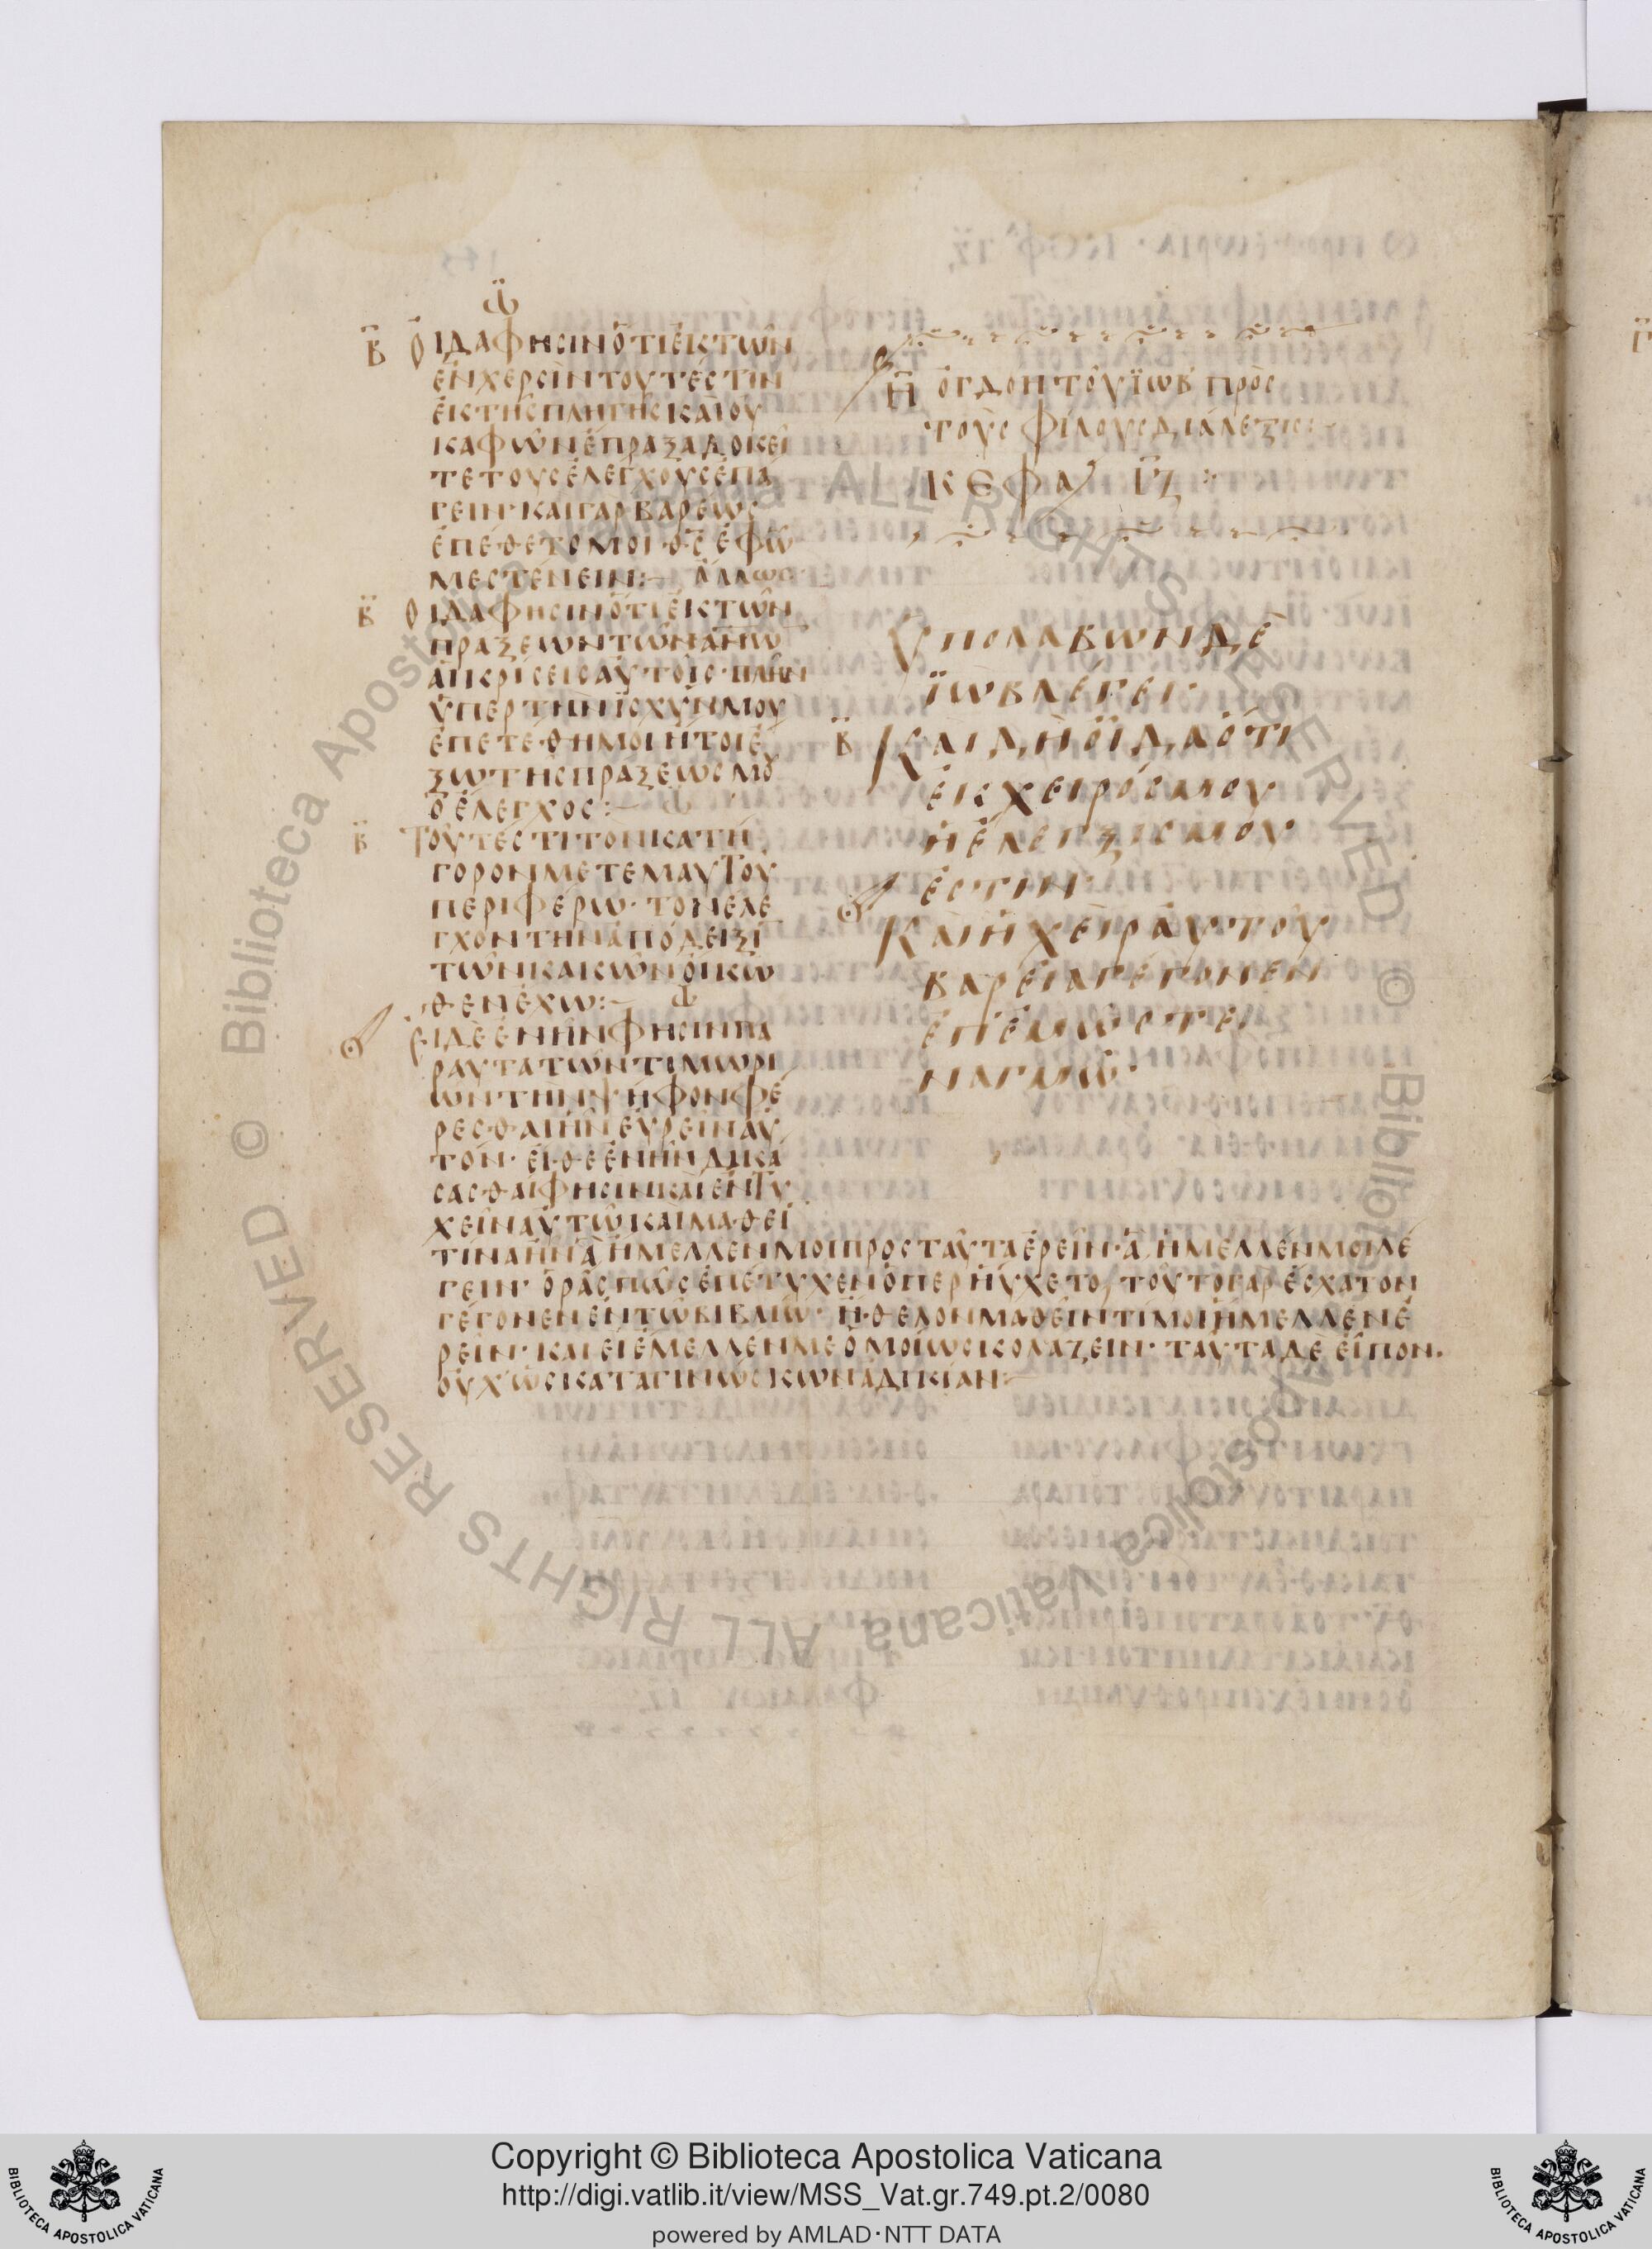 Β ΟΙΔΑΦΗΣΙΝΟΤΙΕΚΤΩΝ
ΕΝΧΕΡΣΙΝΤΟΥΤΕΣΤΙΝ
ΕΚΤΗΣΠΛΗΓΗΣΚΑΙΟΥ
ΚΑΦΩΝΕΠΡΑΞΑΔΟΚΕΙ
ΤΕΤΟΥΣΕΛΕΓΧΟΥΣΕΠΑ
ΓΕΙΝ·ΚΑΙΓΑΡΒΑΡΕΩΣ
ΕΠΕΘΕΤΟΜΟΙΟΘΣΕΦΩ
ΜΕΣΤΕΝΕΙΝ:– ΑΛΛΩΣ
Β ΟΙΔΑΦΗΣΙΝΟΤΙΕΚΤΩΝ
ΠΡΑΞΕΩΝΤΩΝΑΝΩ
ΑΠΚΡΙΣΕΙΣΑΥΤΟΙΣ·ΠΛΗΝ
ΥΠΕΡΤΗΝΙΣΧΥΝΜΟΥ
ΕΠΕΤΕΘΗΜΟΙΗΤΟΙΕ
ΞΩΤΗΣΠΡΑΞΕΩΣΜΟΥ
ΟΕΛΕΓΧΟΣ:–
Β ΤΟΥΤΕΣΤΙΤΟΝΚΑΤΗ
ΓΟΡΟΝΜΕΤΕΜΑΥΤΟΥ
ΠΕΡΙΦΕΡΩ·ΤΟΝΕΛΕ
ΓΧΟΝΤΗΝΑΠΟΔΕΙΞΙ
ΤΩΝΚΑΚΩΝΟΙΚΩ
ΘΕΝΕΧΩ:–
ΕΙΔΕΕΝΗΝΦΗΣΙΝΠΑ
ΡΑΥΤΑΤΩΝΤΙΜΩΡΙ
ΩΝΤΗΝΨΗΦΟΝΦΕ
ΡΕΣΘΑΙΗΝΕΥΡΕΙΝΑΥ
ΤΟΝ·ΕΙΘΕΕΝΗΝΔΙΚΑ
ΣΑΣΘΑΙΦΗΣΙΝΚΑΙΕΝΤΥ
ΧΕΙΝΑΥΤΩΚΑΙΜΑΘΕΙ
ΤΙΝΑΗΝΑΗΜΕΛΛΕΝΜΟΙΠΡΟΣΤΑΥΤΑΕΡΕΙΝ·ΑΗΜΕΛΛΕΝΜΟΙΛΕ
ΓΕΙΝ·ΟΡΑΣΠΩΣΕΠΕΤΥΧΕΝΟΠΕΡΗΥΧΕΤΟ,ΤΟΥΤΟΓΑΡΕΣΧΑΤΟΝ
ΓΕΓΟΝΕΝΕΝΤΩΒΙΒΛΙΩ·ΗΘΕΛΟΝΜΑΘΕΙΝΤΙΜΟΙΗΜΕΛΛΕΝΕ
ΡΕΙΝ·ΚΑΙΕΙΕΜΕΛΛΕΝΜΕΟΜΟΙΩΣΚΟΛΑΖΕΙΝ·ΤΑΥΤΑΔΕΕΙΠΟΝ.
ΟΥΧΩΣΚΑΤΑΓΙΝΩΣΚΩΝΑΔΙΚΙΑΝ:–
Η ΟΓΔΟΗΤΟΥΪΩΒΠΡΟΣ
ΤΟΥΣΦΙΛΟΥΣΔΙΑΛΕΞΙΣ:–
ΚΕΦΑ ΙΖ:
ΥΠΟΛΑΒΩΝΔΕ
ΪΩΒΛΕΓΕΙ·
Β ΚΑΙΔΗΟΙΔΑΟΤΙ
ΕΚΧΕΙΡΟΣΜΟΥ
ΗΕΛΕΓΞΙΣΜΟΥ
ΕΣΤΙΝ·
ΚΑΙΗΧΕΙΡΑΥΤΟΥ
ΒΑΡΕΙΑΓΕΓΟΝΕΝ
ΕΠΕΜΩΣΤΕ
ΝΑΓΜΩ·
Copyright © Biblioteca Apostolica Vaticana
http://digi.vatlib.it/view/MSS_Vat.gr.749.pt.2/0080
powered by AMLAD·NTT DATA
BIBLIOTECA APOSTOLICA VATICANA
BIBLIOTECA APOSTOLICA VATICANA
Biblioteca Apostolica Vaticana ALL RIGHTS RESERVED ©
Biblioteca Apostolica Vaticana ALL RIGHTS RESERVED ©